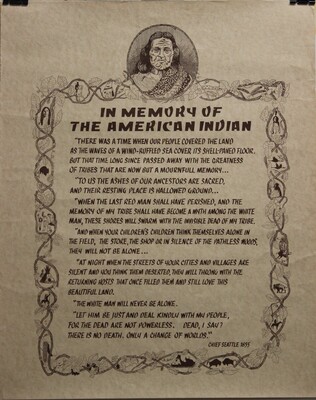 IN MEMORY OF
THE AMERICAN INDIAN
"THERE WAS A TIME WHEN OUR PEOPLE COVERED THE LAND
AS THE WAVES OF A WIND-RUFFLED SEA COVER ITS SHELL-PAVED FLOOR.
BUT THAT TIME LONG SINCE PASSED AWAY WITH THE GREATNESS
OF TRIBES THAT ARE NOW BUT A MOURNFULL MEMORY...
"TO US THE ASHES OF OUR ANCESTORS ARE SACRED,
AND THEIR RESTING PLACE IS HALLOWED GROUND...
"WHEN THE LAST RED MAN SHALL HAVE PERISHED, AND THE
MEMORY OF MY TRIBE SHALL HAVE BECOME A MYTH AMONG THE WHITE
MAN, THESE SHORES WILL SWARM WITH THE INVISIBLE DEAD OF MY TRIBE.
"AND WHEN YOUR CHILDREN'S CHILDREN THINK THEMSELVES ALONE IN
THE FIELD, THE STORE, THE SHOP OR IN SILENCE OF THE PATHLESS WOODS,
THEY WILL NOT BE ALONE...
"AT NIGHT WHEN THE STREETS OF YOUR CITIES AND VILLAGES ARE
SILENT AND YOU THINK THEM DESERTED, THEY WILL THRONG WITH THE
RETURNING HOSTS THAT ONCE FILLED THEM AND STILL LOVE THIS
BEAUTIFUL LAND.
"THE WHITE MAN WILL NEVER BE ALONE.
"LET HIM BE JUST AND DEAL KINDLY WITH MY PEOPLE,
FOR THE DEAD ARE NOT POWERLESS. DEAD, I SAY?
THERE IS NO DEATH. ONLY A CHANGE OF WORLDS."
CHIEF SEATTLE 1855